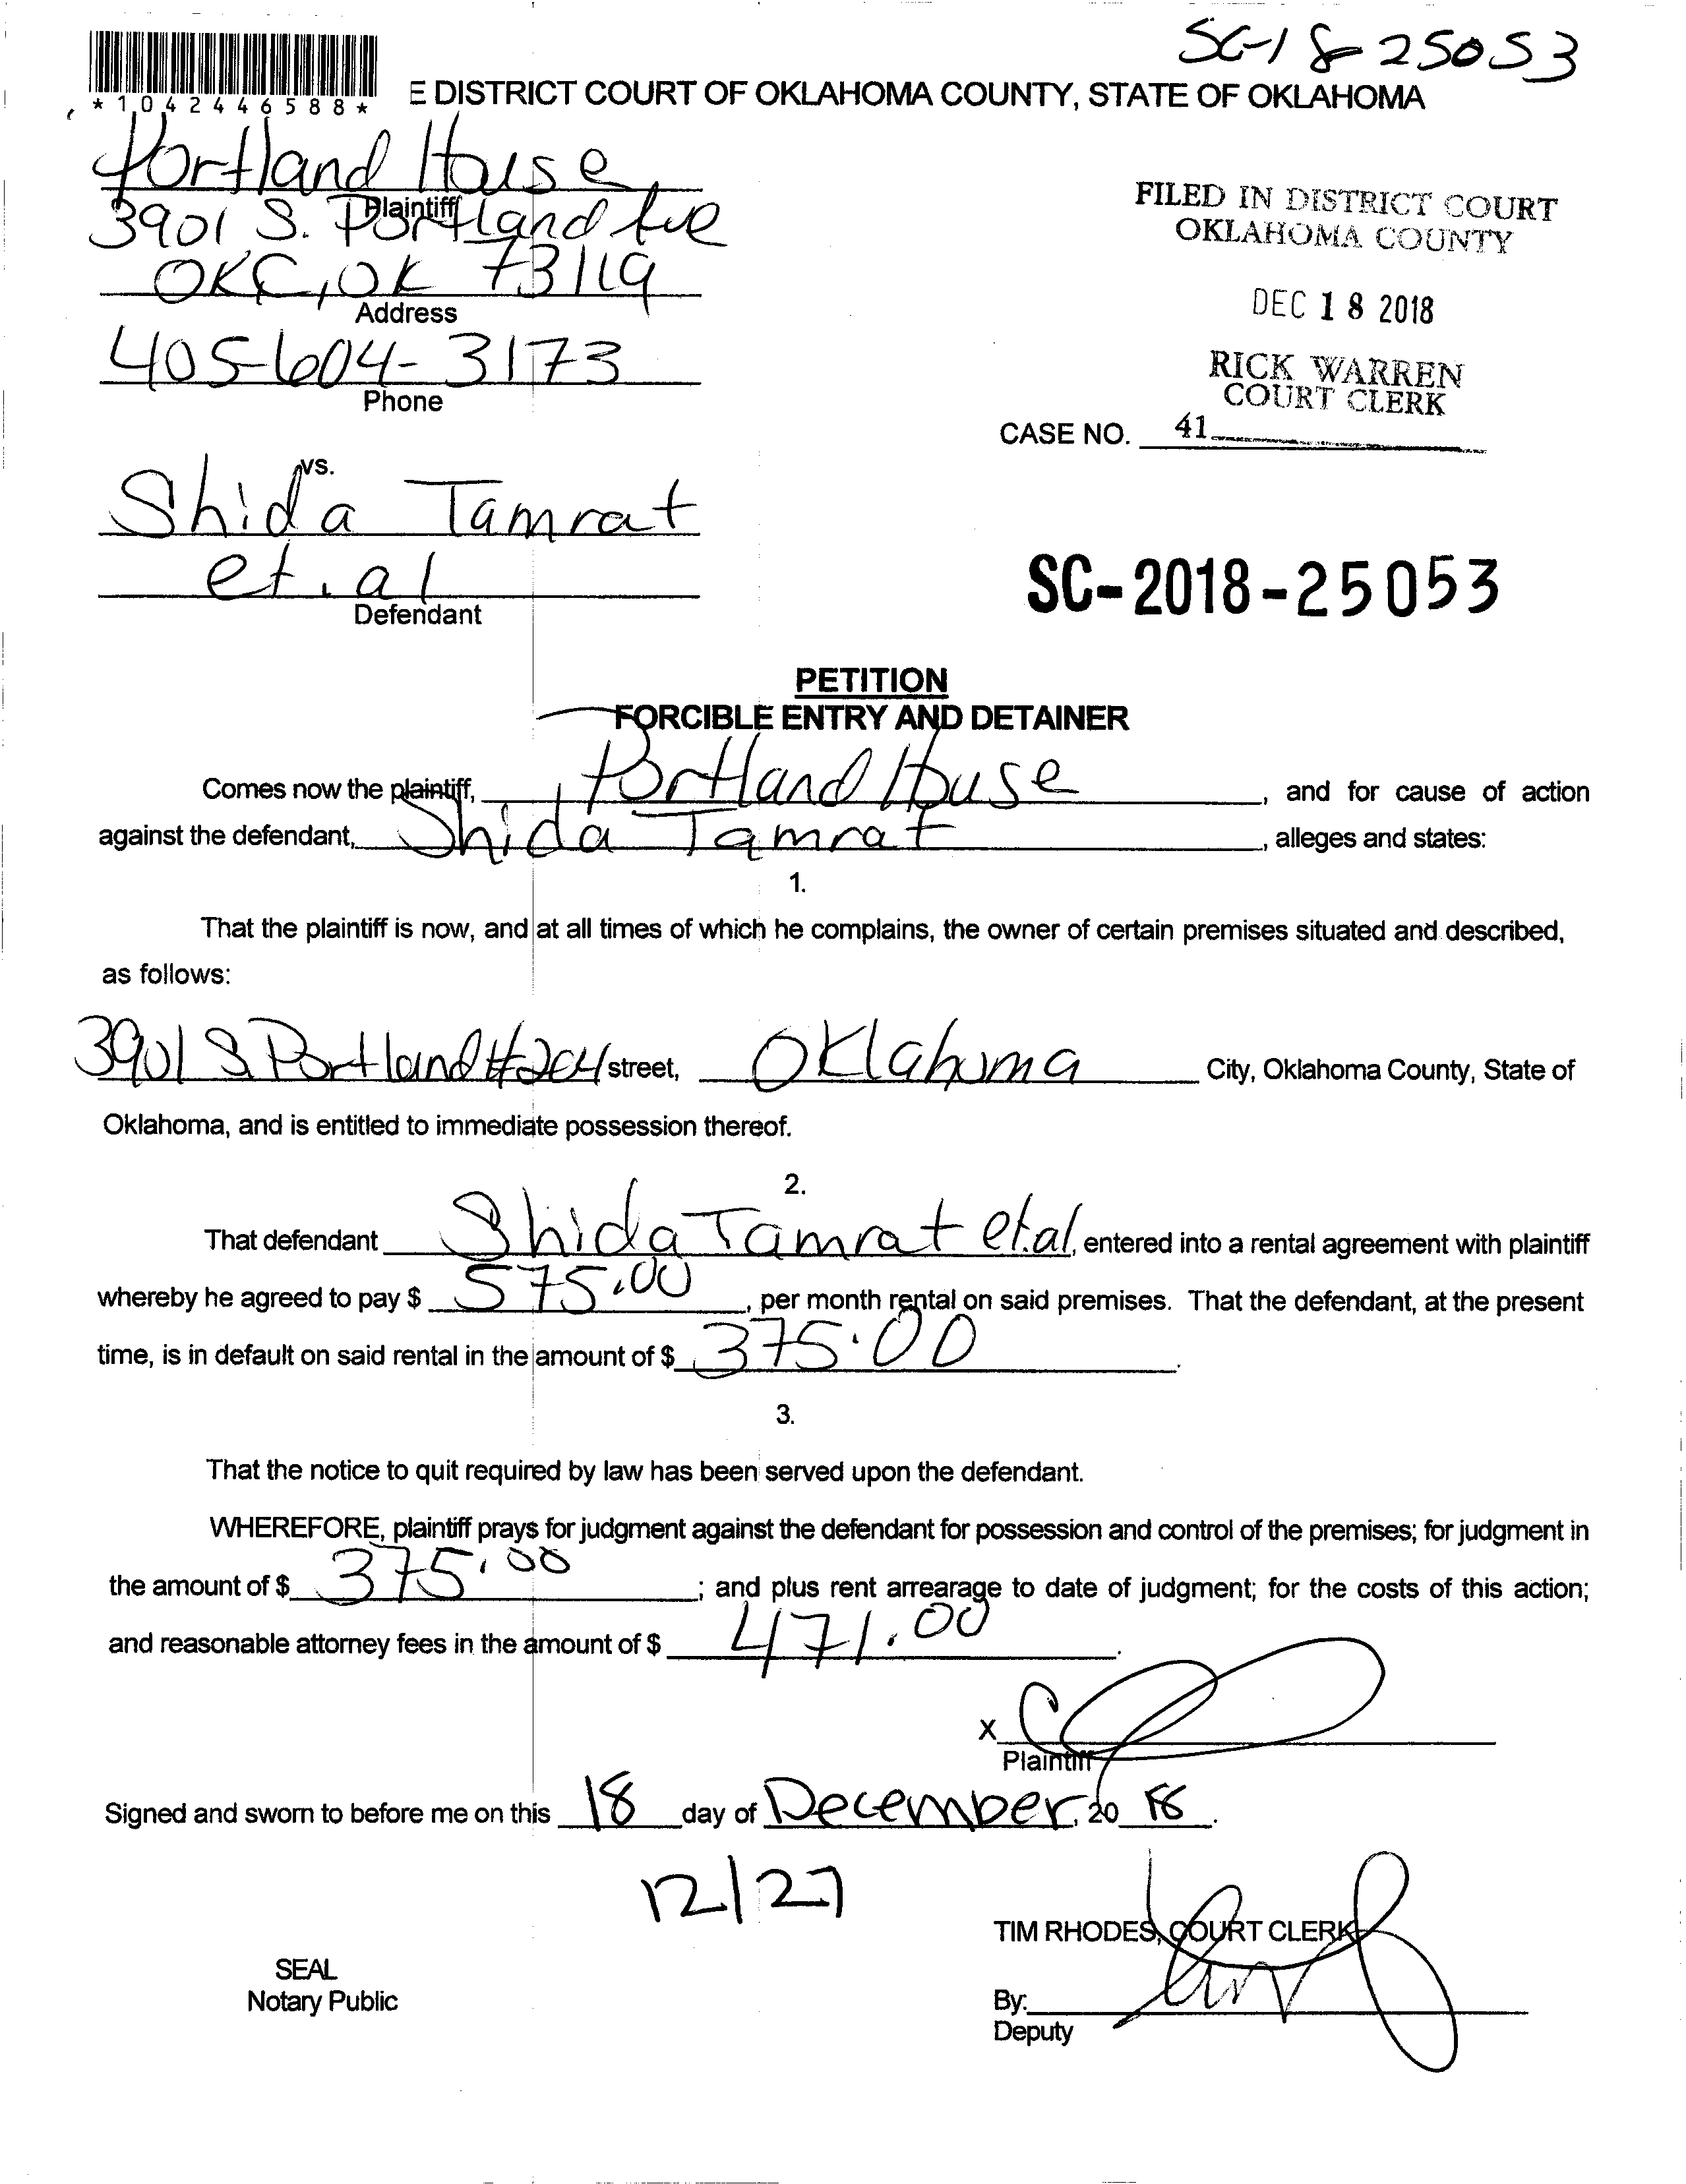 SC-18-25053
*1042446588*
E DISTRICT COURT OF OKLAHOMA COUNTY, STATE OF OKLAHOMA
Portland House
Plaintiff
3901 S. Portland Ave
OKC, OK 73119
Address
405-604-3173
Phone
FILED IN DISTRICT COURT
OKLAHOMA COUNTY
DEC 18 2018
RICK WARREN
COURT CLERK
CASE NO. 41
vs.
Shida Tamrat
et. al
Defendant
SC-2018-25053
PETITION
FORCIBLE ENTRY AND DETAINER
Comes now the plaintiff, Portland House, and for cause of action
against the defendant, Shida Tamrat, alleges and states:
1.
That the plaintiff is now, and at all times of which he complains, the owner of certain premises situated and described,
as follows:
3901 S Portland #204 street, Oklahoma City, Oklahoma County, State of
Oklahoma, and is entitled to immediate possession thereof.
2.
That defendant Shida Tamrat et.al, entered into a rental agreement with plaintiff
whereby he agreed to pay $ 575.00, per month rental on said premises. That the defendant, at the present
time, is in default on said rental in the amount of $ 375.00.
3.
That the notice to quit required by law has been served upon the defendant.
WHEREFORE, plaintiff prays for judgment against the defendant for possession and control of the premises; for judgment in
the amount of $ 375.00; and plus rent arrearage to date of judgment; for the costs of this action;
and reasonable attorney fees in the amount of $ 471.00.
X
Plaintiff
Signed and sworn to before me on this 18 day of December, 20 18.
12/27
TIM RHODES, COURT CLERK
SEAL
Notary Public
By:
Deputy